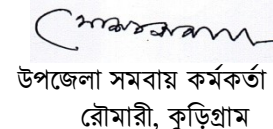 উপজেলা সমবায় কর্মকর্তা
রৌমারী, কুড়িগ্রাম